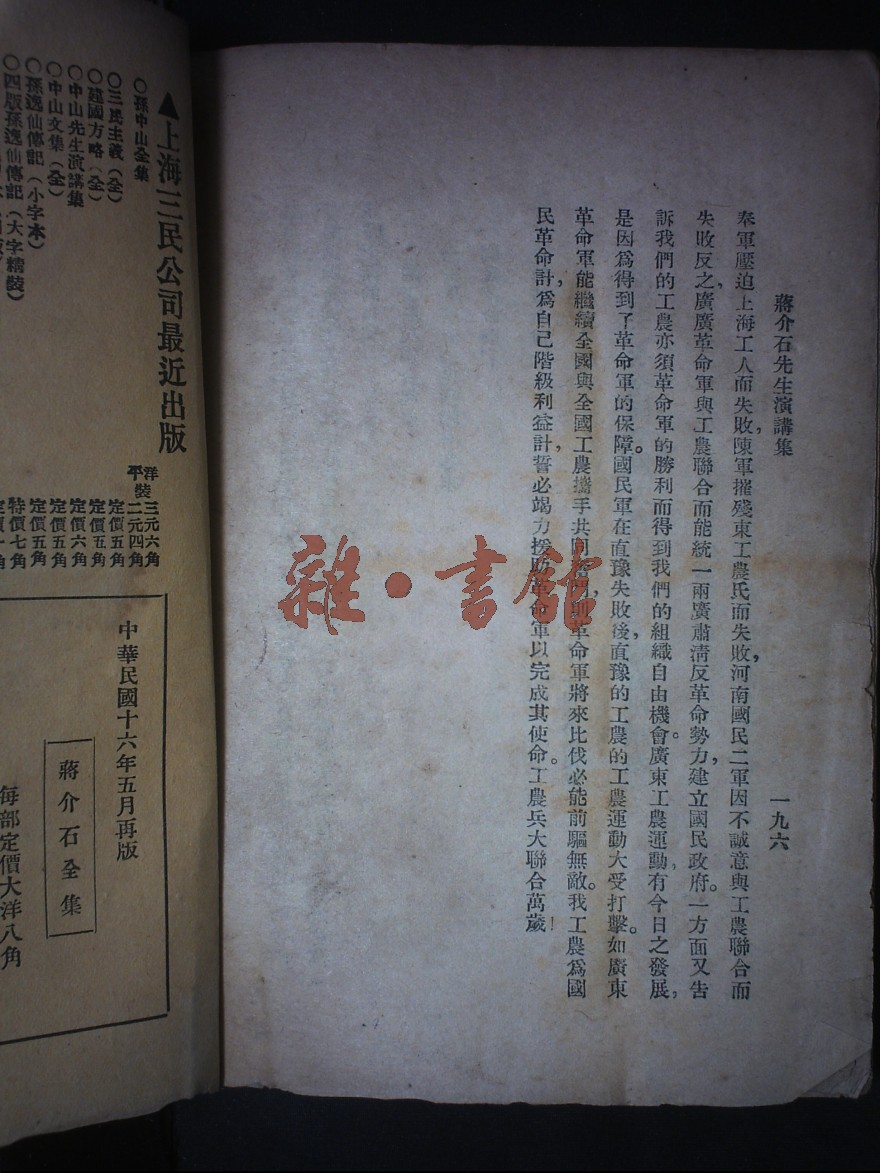 蔣介石先生演講集
一九六
奉軍壓迫上海工人而失敗,陳軍摧殘東工農民而失敗,河南國民二軍因不誠意與工農聯合而
失敗反之,廣廣革命軍與工農聯合而能統一兩廣肅清反革命勢力,建立國民政府。一方面又告
訴我們的工農亦須革命軍的勝利而得到我們的組織自由機會。廣東工農運動,有今日之發展,
是因爲得到了革命軍的保障。國民軍在直豫失敗後,直豫的工農的工農運動大受打擊。如廣東
革命軍能繼續全國與全國工農攜手共同,則革命軍將來比伐必能前驅無敵。我工農爲國
民革命計,爲自己階級利益計,誓必竭力援助革命軍以完成其使命。工農兵大聯合萬歲!
雜·書館
▲上海三民公司最近出版
○孫中山全集 洋裝三元六角 平裝二元四角
○三民主義(全) 定價五角
○建國方略(全) 定價五角
○中山先生演講集 定價六角
○中山文集(全) 定價五角
○孫逸仙傳記(小字本) 定價五角
○四版孫逸仙傳記(大字精裝) 特價七角
中華民國十六年五月再版
蔣介石全集
每部定價大洋八角